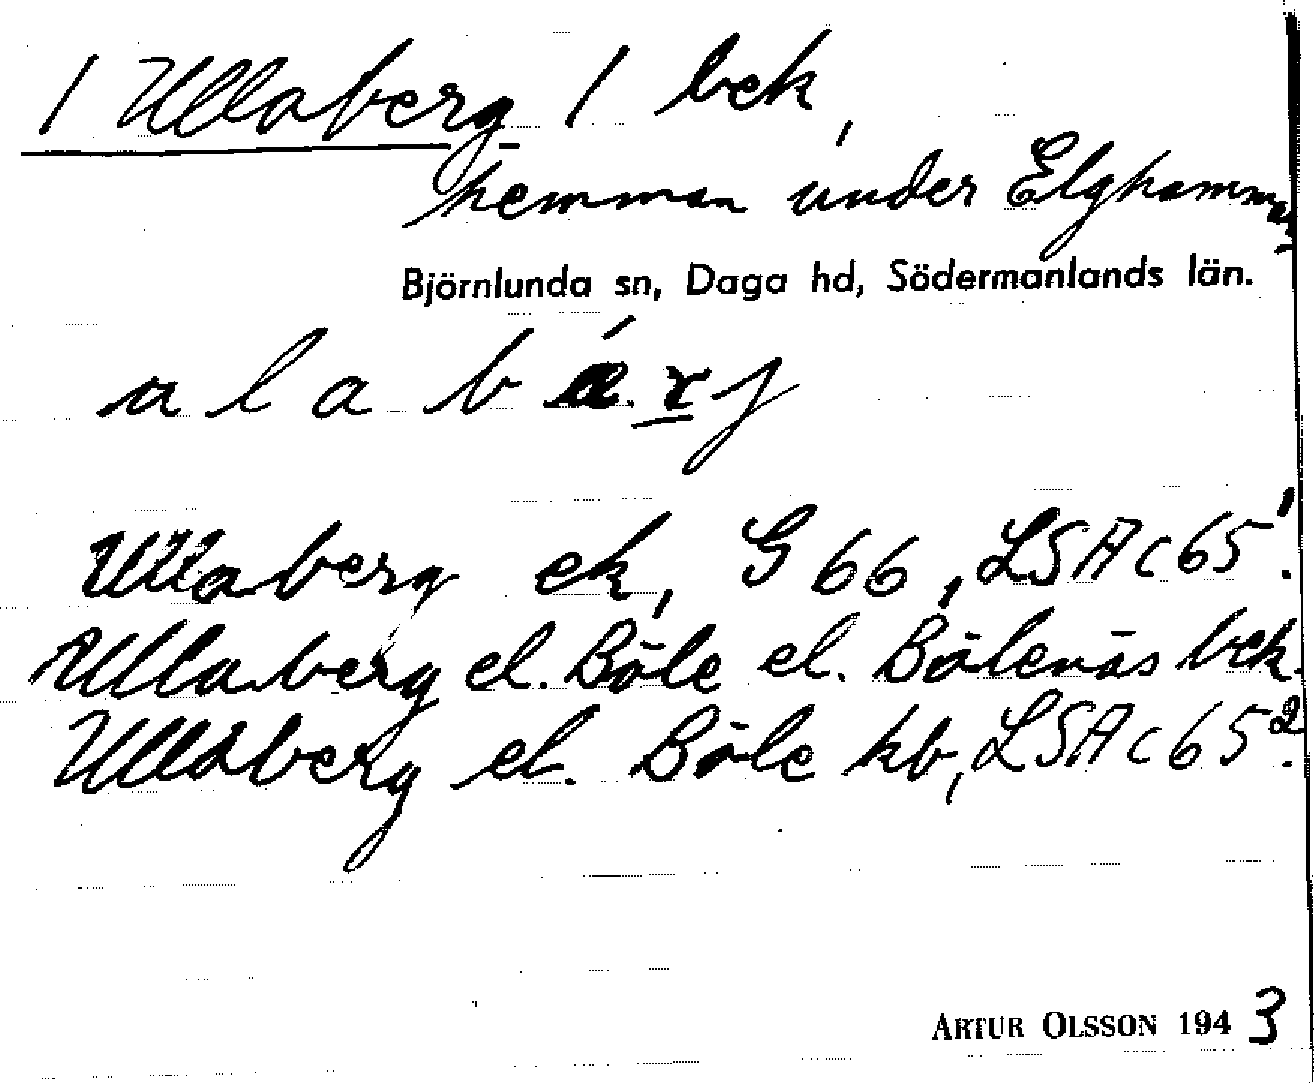 / Ullaberg / bek,
hemman under Elghammar
Björnlunda sn, Daga hd, Södermanlands län.
a l a b ǽ r j
Ullaberg ek, G 66, LSA c 65¹.
Ullaberg el. Böle el. Bölenäs bek.
Ullaberg el. Böle kb, LSA c 65².
ARTUR OLSSON 1943